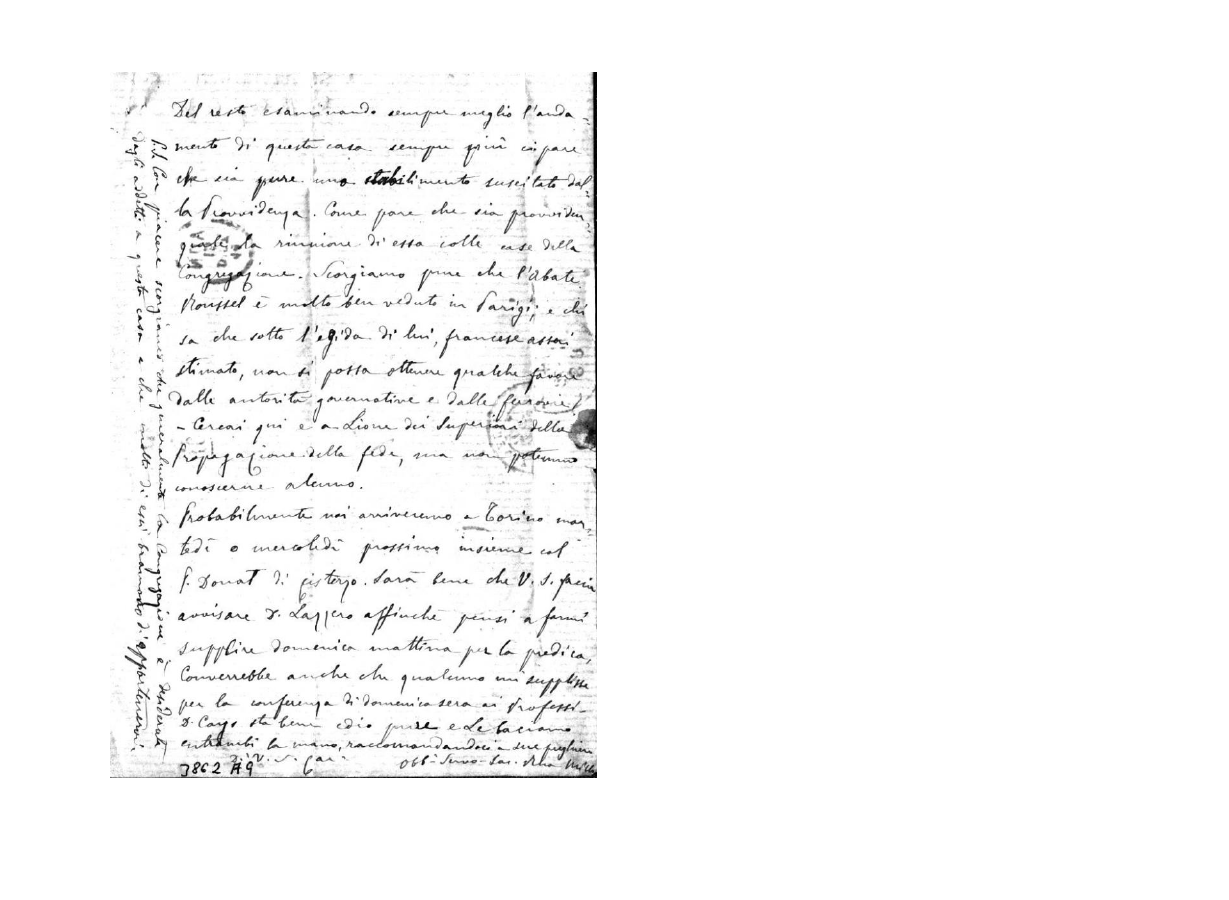 Del resto esaminando sempre meglio l'anda-
mento di questa casa sempre più ci pare
che sia pure uno stabilimento suscitato dal-
la Provvidenza. Come pare che sia provviden-
ziale la riunione di essa colle case della
Congregazione. Scorgiamo pure che l'Abate
Roussel è molto ben veduto in Parigi, e chi
sa che sotto l'egida di lui, francese assai
stimato, non si possa ottenere qualche favore
dalle autorità governative e dalle ferrovie!
- Cercai qui e a Lione dei Superiori della
Propagazione della fede, ma non potemmo
conoscerne alcuno.
Probabilmente noi arriveremo a Torino mar-
tedì o mercoledì prossimo insieme col
P. Donat di cisterzo. Sarà bene che V. S. faccia
avvisare D. Lazzero affinchè pensi a farmi
supplire domenica mattina per la predica,
Converrebbe anche che qualcuno mi supplisse
per la conferenza di domenica sera ai Professi-
D. Cays sta bene ed io pure e Le baciamo
entrambi la mano, raccomandandoci a sue preghiere
Di V. S. Car.
Obb. Servo Sac. Rua Mich
3862 A9
6
P.S. Con piacere scorgiamo che generalmente la Congregazione è desiderata
dagli addetti a questa casa e che molti di essi bramano di appartenervi.